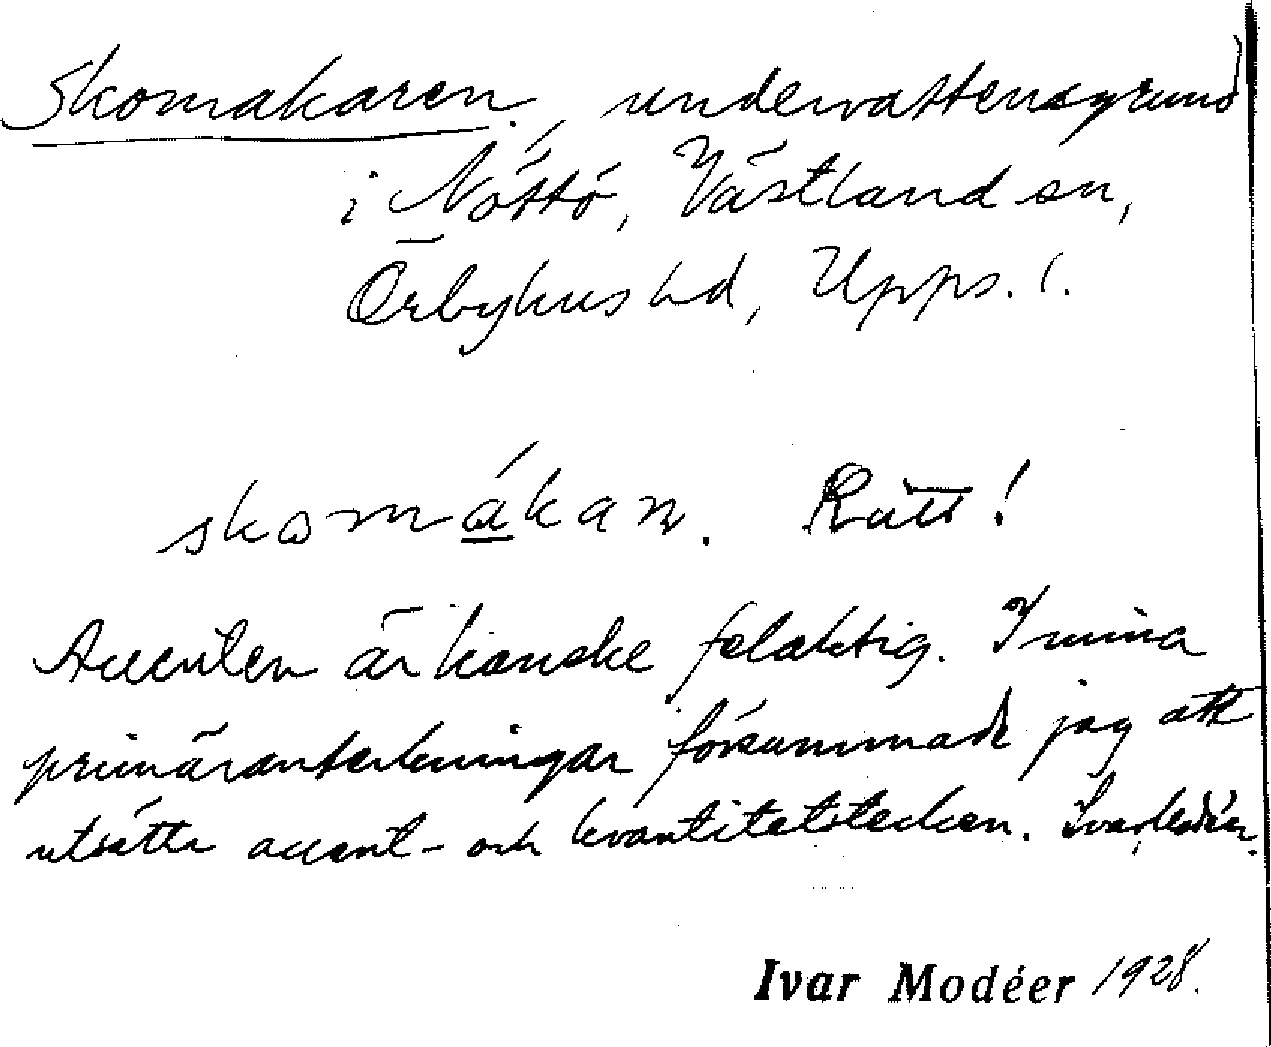 Skomakaren, undervattensgrund
i Nöttö, Västland sn,
Örbyhus hd, Upps. l.
skomákan. Rätt!
Accenten är kanske felaktig. I mina
primäranteckningar försummade jag att
utsätta accent- och kvantitetstecken. Ivar Modéer.
Ivar Modéer 1928.